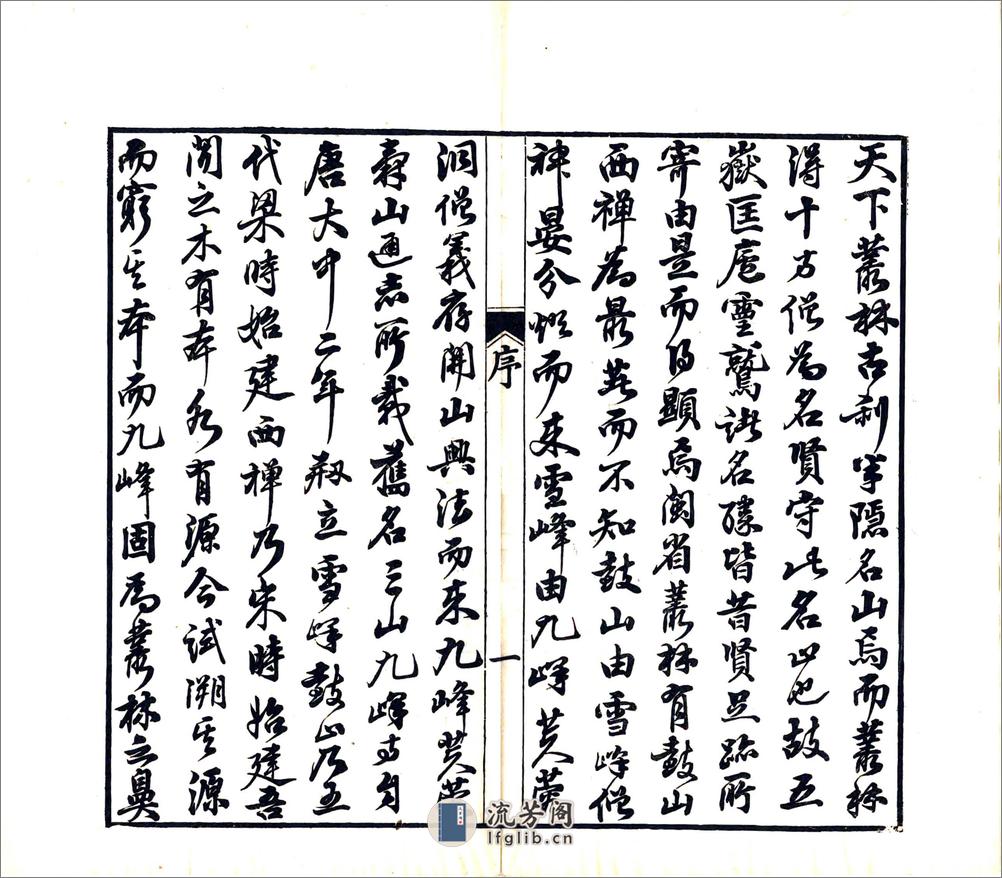 天下叢林古刹半隱名山焉而叢林
得十方僧為名賢守此名山也故五
嶽匡廬靈鷲諸名勝皆昔賢足跡所
寄由是而得顯焉閩省叢林有鼓山
西禪為最無而不知鼓山由雪峰僧
神晏分燈而來雪峰由九峰芙蓉
序
一
洞僧義存開山興法而來九峰芙蓉
壽山通志所載舊名三山九峰寺自
唐大中二年剏立雪峰鼓山乃五
代梁時始建西禪乃宋時始建吾
聞之木有本水有源今試溯其源
而窮其本而九峰固為叢林之鼻
流芳閣
lfglib.cn